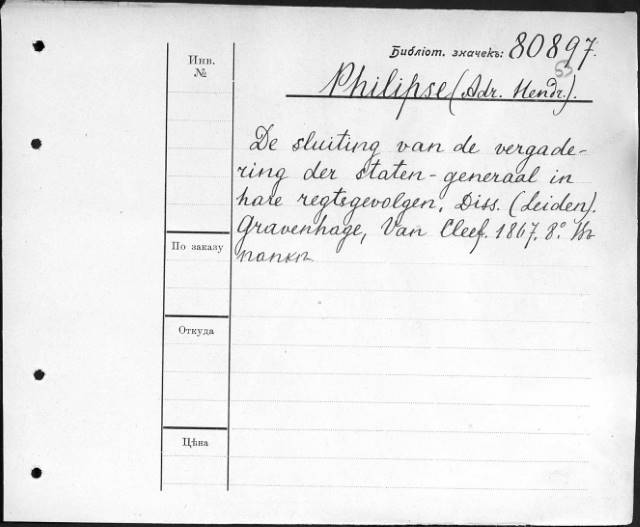 Библіот. значекъ: 80897.
53
Инв.
№
Philipse (Adr. Hendr.).
De sluiting van de vergade-
ring der staten-generaal in
hare regtsgevolgen. Diss. (Leiden).
Gravenhage, Van Cleef. 1867. 8.° Въ
папкѣ
По заказу
Откуда
Цѣна